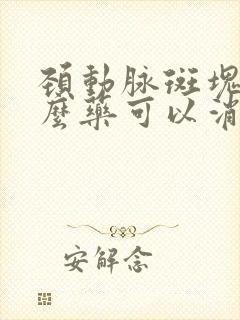 頸動脉斑塊
麼藥可以消
安解念